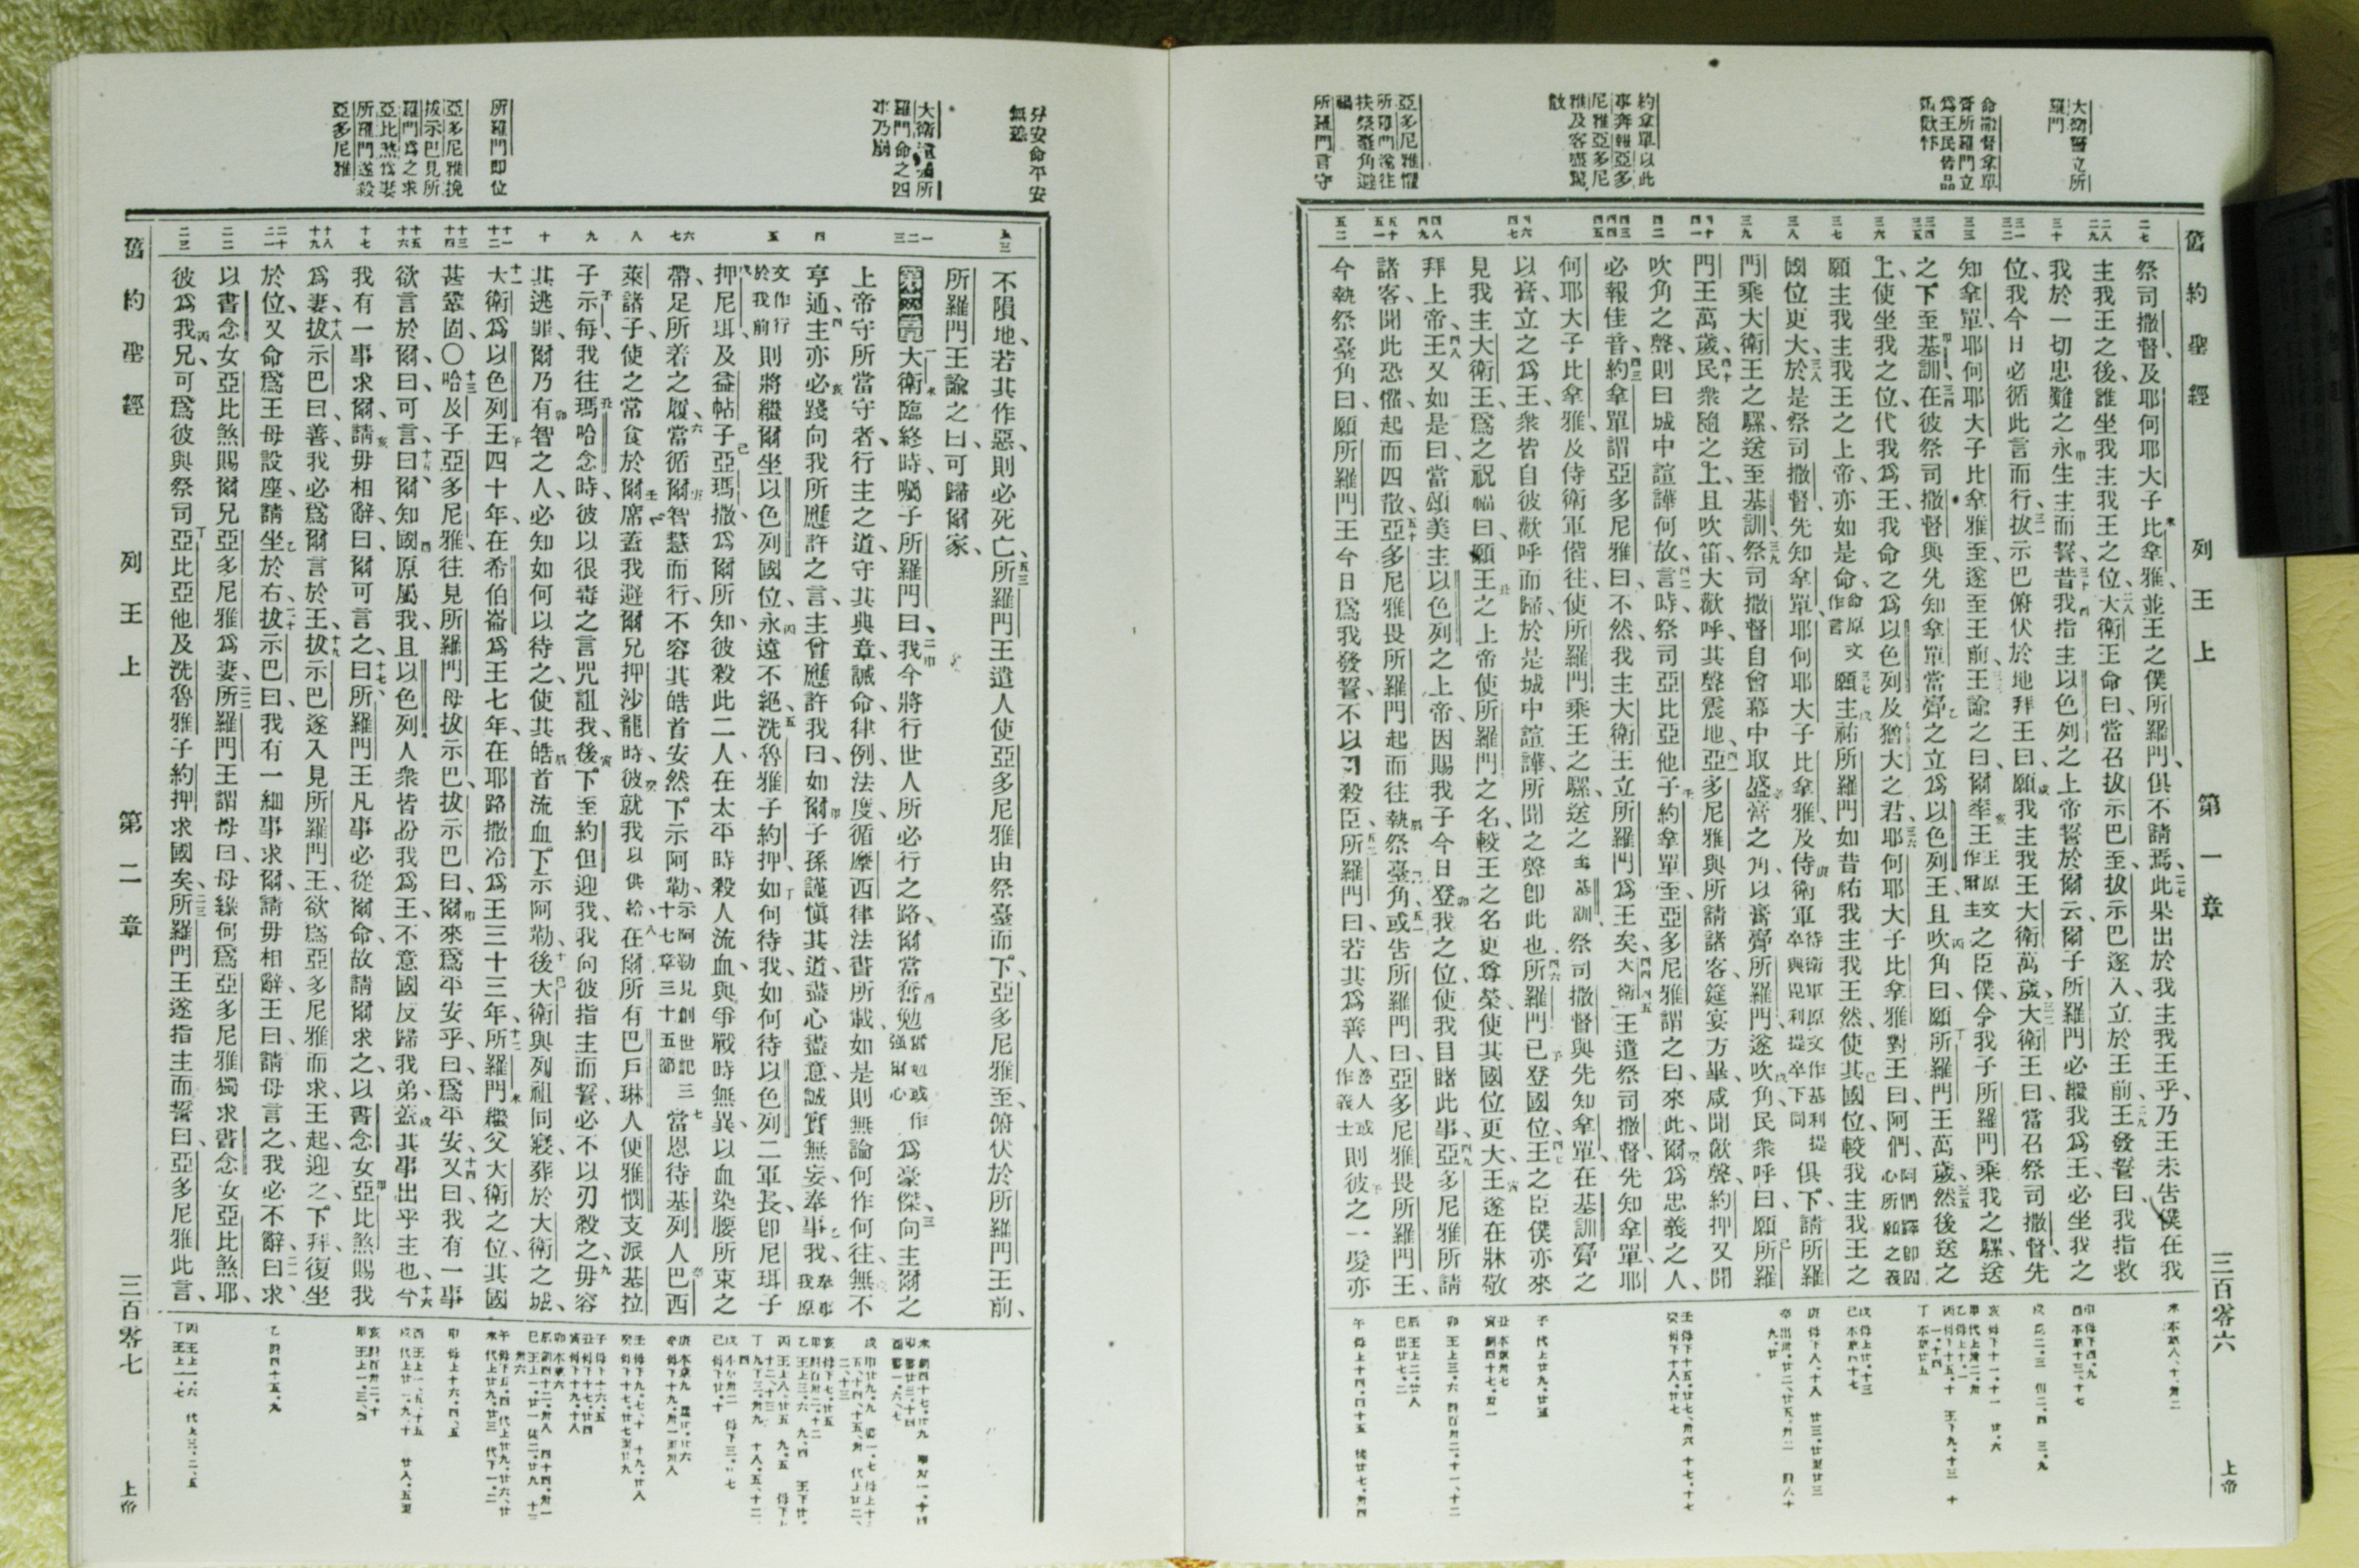 舊約聖經　列王上　第一章　三百零六　上帝
大衛誓立所
羅門
命撒督拿單
膏所羅門立
爲王民皆品
約拿單以此
事奔報亞多
尼雅亞多尼
雅及客盡驚
散
亞多尼雅懼
所羅門遂往
扶祭臺角避
禍
所羅門言守
二七
二八 二九
三十
三一 三二
三三
三四 三五
三六
三七
三八
三九
四十 四一
四二
四三 四四 四五
四六 四七
四八 四九
五十 五一
五二
祭司撒督、及耶何耶大子比拿雅、並王之僕所羅門、俱不請焉、此果出於我主我王乎、乃王未告僕在我
主我王之後、誰坐我主我王之位、大衛王命曰、當召拔示巴至、拔示巴遂入、立於王前、王發誓曰、我指救
我於一切患難之永生主而誓、昔我指主以色列之上帝誓於爾云、爾子所羅門必繼我爲王、必坐我之
位、我今日必循此言而行、拔示巴俯伏於地拜王曰、願我主我王大衛萬歲、大衛王曰、當召祭司撒督、先
知拿單、耶何耶大子比拿雅至、遂至王前、王諭之曰、爾率王王原文作爾主之臣僕、令我子所羅門乘我之騾、送
之下至基訓、在彼祭司撒督與先知拿單當膏之立爲以色列王、且吹角曰、願所羅門王萬歲、然後送之
上、使坐我之位、代我爲王、我命之爲以色列及猶大之君、耶何耶大子比拿雅對王曰、阿們、阿們譯卽固心所願之義
願主我主我王之上帝、亦如是命、命原文作言願主祐所羅門、如昔祐我主我王然、使其國位、較我主我王之
國位更大、於是祭司撒督、先知拿單、耶何耶大子比拿雅、及侍衛軍侍衛軍原文作基利提卒與毘利提卒下同俱下、請所羅
門乘大衛王之騾、送至基訓、祭司撒督自會幕中取盛膏之角、以膏膏所羅門、遂吹角、民衆呼曰、願所羅
門王萬歲、民衆隨之上、且吹笛、大歡呼、其聲震地、亞多尼雅與所請諸客、筵宴方畢、咸聞歡聲、約押又聞
吹角之聲、則曰、城中諠譁何故、言時、祭司亞比亞他子約拿單至、亞多尼雅謂之曰、來此、爾爲忠義之人、
必報佳音、約拿單謂亞多尼雅曰、不然、我主大衛王立所羅門爲王矣、大衛王遣祭司撒督、先知拿單、耶
何耶大子比拿雅、及侍衛軍偕往、使所羅門乘王之騾、送之至基訓、祭司撒督與先知拿單在基訓膏之
以膏、立之爲王、衆皆自彼歡呼而歸、於是城中諠譁、所聞之聲卽此也、所羅門已登國位、王之臣僕亦來
見我主大衛王、爲之祝福曰、願王之上帝使所羅門之名、較王之名更尊榮、使其國位更大、王遂在牀敬
拜上帝、王又如是曰、當頌美主以色列之上帝、因賜我子今日登我之位、使我目睹此事、亞多尼雅所請
諸客、聞此恐懼、起而四散、亞多尼雅畏所羅門、起而往執祭臺角、或告所羅門曰、亞多尼雅畏所羅門王、
今執祭臺角曰、願所羅門王今日爲我發誓、不以刃殺臣、所羅門曰、若其爲善人、善人或作義士則彼之一髮亦
分安命平安
無恙
大衛
羅門命之四
乃崩
所羅門卽位
亞多尼雅挽
拔示巴見所
羅門爲之求
亞比煞爲妻
所羅門遂殺
亞多尼雅
五三
一 二 三
四
五
六 七
八
九
十
十一 十二
十三 十四
十五 十六
十七
十八 十九
二十 二一
二二
二三
不隕地、若其作惡、則必死亡、所羅門王遣人使亞多尼雅由祭臺而下、亞多尼雅至、俯伏於所羅門王前、
所羅門王諭之曰、可歸爾家、
第二章大衛臨終時、囑子所羅門曰、我今將行世人所必行之路、爾當奮勉奮勉或作強爾心爲豪傑、向主爾之
上帝、守所當守者、行主之道、守其典章、誡命、律例、法度、循摩西律法書所載、如是則無論何作何往、無不
亨通、主亦必踐向我所應許之言、主曾應許我曰、如爾子孫謹愼其道、盡心盡意、誠實無妄、奉事我、奉事我原
文作行於我前則將繼爾坐以色列國位、永遠不絕、洗魯雅子約押、如何待我、如何待以色列二軍長、卽尼珥子
押尼珥、及益帖子亞瑪撒、爲爾所知、彼殺此二人、在太平時殺人流血、與爭戰時無異、以血染腰所束之
帶、足所着之履、當循爾智慧而行、不容其皓首安然下示阿勒、示阿勒見創世記三十七章三十五節當恩待基列人巴西
萊諸子、使之常食於爾席、蓋我避爾兄押沙龍時、彼就我以供給、在爾所有巴戶琳人便雅憫支派基拉
子示每、我往瑪哈念時、彼以很毒之言咒詛我、後下至約但迎我、我向彼指主而誓、必不以刃殺之、毋容
其逃罪、爾乃有智之人、必知如何以待之、使其皓首流血、下示阿勒、後大衛與列祖同寢、葬於大衛之城、
大衛爲以色列王四十年、在希伯崙爲王七年、在耶路撒冷爲王三十三年、所羅門繼父大衛之位、其國
甚鞏固、○哈及子亞多尼雅、往見所羅門母拔示巴、拔示巴曰、爾來爲平安乎、曰、爲平安、又曰、我有一事
欲言於爾、曰、可言、曰、爾知國原屬我、且以色列人衆皆盼我爲王、不意國反歸我弟、蓋其事出乎主也、今
我有一事求爾、請毋相辭、曰、爾可言之、曰、所羅門王凡事必從爾命、故請爾求之、以書念女亞比煞賜我
爲妻、拔示巴曰、善、我必爲爾言於王、拔示巴遂入見所羅門王、欲爲亞多尼雅而求、王起、迎之、下拜、復坐
於位、又命爲王母設座、請坐於右、拔示巴曰、我有一細事求爾、請毋相辭、王曰、請母言之、我必不辭、曰、求
以書念女亞比煞賜爾兄亞多尼雅爲妻、所羅門王謂母曰、母緣何爲亞多尼雅獨求書念女亞比煞耶、
彼爲我兄、可爲彼與祭司亞比亞他、及洗魯雅子約押求國矣、所羅門王遂指主而誓曰、亞多尼雅此言、
舊約聖經　列王上　第二章　三百零七　上帝